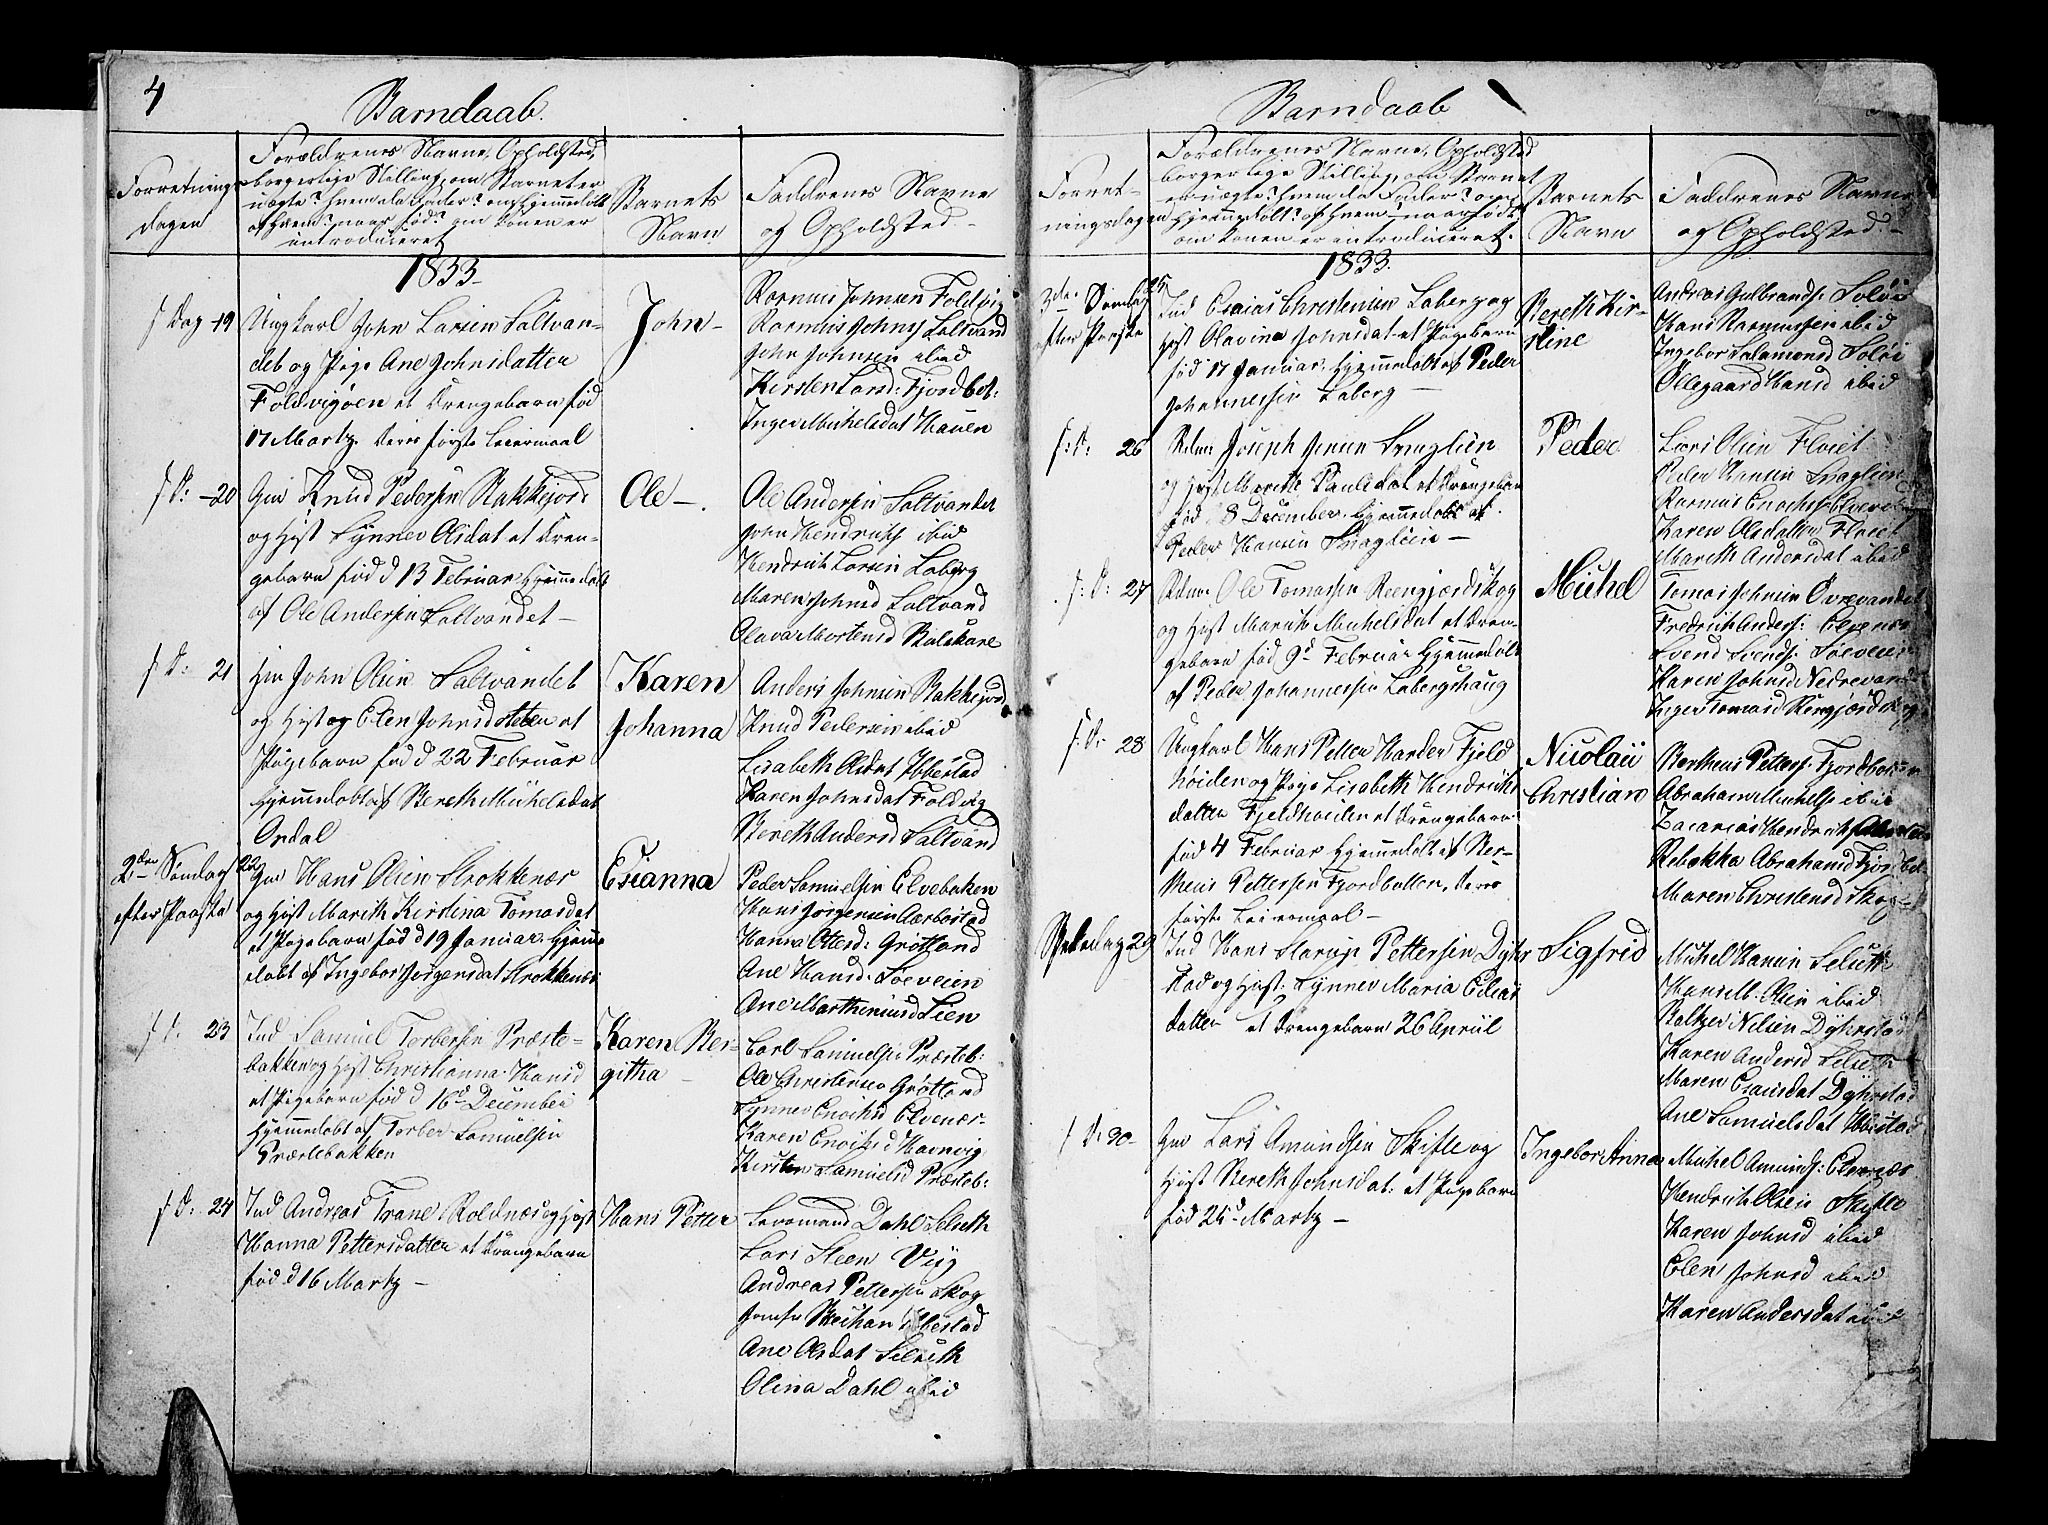 4
Barndaab.
Forretnings
dagen
Forældrenes Navne, Opholdsted,
borgerlige Stilling, om Barnet er
uægte? hvem da Fader? om hjemmedöbt
af hvem? naar fød? om Konen er
introduceret
Barnets
Navn
Faddrenes Navne
og Opholdsted.-
1833-
f Dag 19
Ungkarl John Larsen Saltvan-
det og Pige Ane Johnsdatter
Foldvigøen et Drengebarn fød
17 Martz. Deres første Leiermaal
John-
Rasmus Johnsen Foldvig
Rasmus Johns Saltvand
John Johnsen ibid
Kirsten Larsd: Fjordbot:
Inger Michelsdat Hauen
f D: -20
Gm Knud Pedersen Bakkejord
og Hust Synnev Olsdat et Dren-
gebarn fød d 13 Februar Hjemmedøbt
af Ole Andersen Saltvandet-
Ole-.
Ole Andersen Saltvandet
John Hendrichs ibid
Hendrich Larsen Laberg
Maren Johnsd Saltvand
Olava Mortensd
f D: 21
John Olsen Saltvandet
og Hust og Elen Johnsdatter et
Pigebarn fød d 22 Februar
Hjemmedøbt af Bereth Michelsdat
Ondal
Karen
Johanna
Anders Johnsen Bakkejord
Knud Pedersen ibid
Lisabeth Olsdat Ibbestad
Karen Johnsdat Foldvig
Bereth Andersd Saltvand
2den Søndag 22
efter Paaske
Gm Hans Olsen Krokkenæs
og Hust Marith Kirstina Tomasdat
et Pigebarn fød d 19 Januar. Hjemme
døbt af Ingebor Jørgensdat Krokkenæs
Esianna
Peder Samuelsen Elvebaken
Hans Jørgensen Aarbostad
Hanna Ottersd: Grøtland
Ane Hansd: Søeveien
Ane Marthiniusd Lien
f D: 23
Ind Samuel Torbersen Præste-
bakken og Hust Christianna Hansd
et Pigebarn fød d 16d December
Hjemmedøbt af Torber Samuelsen
Præstebakken
Karen Ber-
githa-
Carl Samuelsen Præsteb:
Ole Christensen Grøtland
Synnev Enochsd Elvenæs-
Karen Enochsd Havnvig
Kirsten Samuelsd Præsteb:
f D: 24
Ind Andreas Trane Roldnæs og Hust
Hanna Pettersdatter et Drengebarn
fød d 16 Martz-
Hans Petter
Dahl Selseth
Lars Steen Viig
Andreas Pettersen Skog
Jomfr Ibbestad
Ane Olsdat Selseth
Olina Dahl ibid
Barndaab
Forret-
ningsdagen
Forældrenes Navne, Opholdsted
borgerlige Stilling, om Barnet
er uægte? hvem da Fader? om
Hjemmedöbt? af Hvem-naar født?
om Konen er introduceret.
Barnets
Navn
Faddrenes Navne
og Opholdsted.-
1833.
3die Søndag 25
efter Paaske
Ind Esaias Christensen Laberg og
Hust Olavina Johnsdat et Pigebarn
fød 17 Januar. Hjemmedøbt af Peder
Johannessen Laberg-
Bereth Kir-
stine
Andreas Gulbrands: Soløi
Hans Rasmussen ibid
Ingebor Salamonsd Soløi
Ollegaard Hansd ibid
f: D: 26
Joseph Jensen Snaglien
og Hust Marethe Paulsdat et Drengebarn
fød 8 December. Hjemmedøbt af
Peder Hansen Snaglien-
Peder
Lars Olsen Floiet
Peder Hansen Snaglien
Rasmus Enochs
Karen Olsdatter Floiet
Mareth Andersdat ibid
f: D: 27
Ole Tomassen Reengjærdskog
og Hust Marith Michelsdat et Dren-
gebarn fød 9d Februar Hjemmedøbt
af Peder Johannessen Labergshaug
Michel
Tomas Johnsen Øvrevandet
Fredrich Anders: Elvenæs
Svend Svends: Søeveien
Karen Johnsd Nedrevand
Inger Tomasd Ringjærdskog
f: D: 28
Ungkarl Hans Petter Harder Fjeld
høiden og Pige Lisabeth Hendrichs
datter Fjeldhøiden et Drengebarn
fød 4 Februar Hjemmedøbt af Ber-
theus Pettersen Fjordbotten, deres
første Leiermaal-
Nicolaii
Christian
Bertheus Petters: Fjordbotten
Abraham Michelse ibid
Zacarias Hendrichs
Rebekka Abrahamsd Fjordbot
Maren Christensd Skog
Bededag 29
Ind Hans Starup Pettersen Dyhr
stad og Hust: Synnev Maria Eliæ
datter et Drengebarn 26 April
Sigfrid
Michel Hansen Selseth
Hans M. Olsen ibid
Baltzer Nilsen Dyhrstad
Karen Andersd Selseth
Maren Esaisdat Dyhrstad
Ane Samuelsdat Ibbestad
f D: 30-
Gm Lars Amundsen Skifte og
Hust Bereth Johnsdat: et Pigebarn
fød 25d Martz-
Ingebor Anna
Michel Amunds: Elvenæs
Hendrich Olsen Skifte
Karen Johnsd ibid
Elen Johnsd ibid
Karen Andersdat ibid